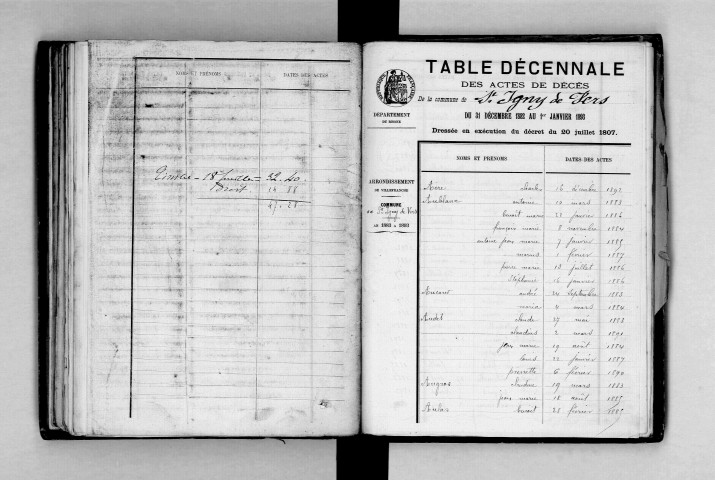 NOMS ET PRÉNOMS DATES DES ACTES
Timbre - 18 feuilles = 32.40
Droit 14 88
47.28
TABLE DÉCENNALE
DES ACTES DE DÉCÈS
De la commune de St Igny de Vers
DU 31 DÉCEMBRE 1882 AU 1er JANVIER 1893
Dressée en exécution du décret du 20 juillet 1807.
DÉPARTEMENT
DU RHONE
ARRONDISSEMENT
DE VILLEFRANCHE
COMMUNE
de St Igny de Vers
DE 1883 à 1893
NOMS ET PRÉNOMS DATES DES ACTES
Charles 16 1892
antoine 10 mars 1883
benoit marie 21 janvier 1884
françois marie 8 novembre 1884
antoine jean marie 7 janvier 1885
1 février 1887
pierre marie 13 juillet 1886
Stéphanie 16 janvier 1886
andré 24 Septembre 1883
maria 4 mars 1884
Audet claude 27 mai 1883
claudius 2 mars 1891
jean marie 19 août 1884
louis 22 janvier 1887
pierrette 6 février 1890
Augros 19 mars 1883
jean marie 18 août 1885
benoit 21 février 1885